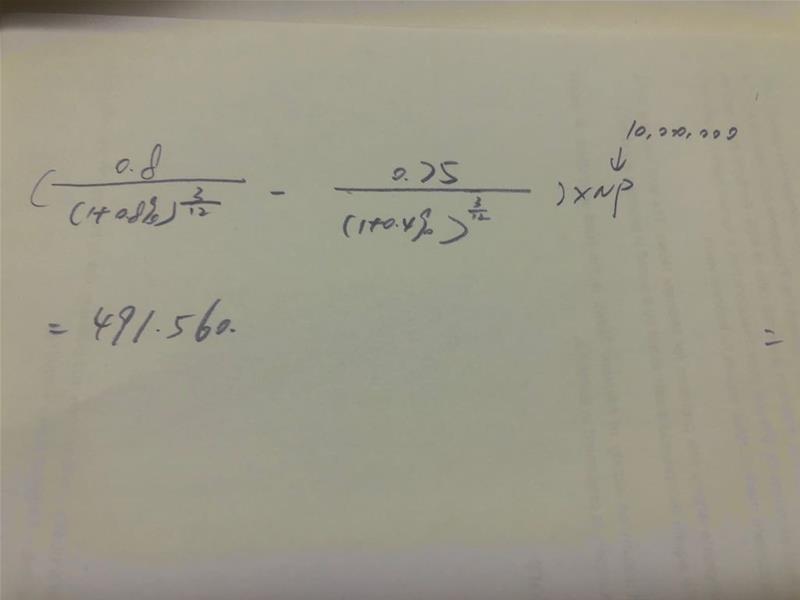 10,000,000
↓
( 0.8 / (1+0.8%)^(3/12) - 0.75 / (1+0.4%)^(3/12) ) × NP
= 491.560.
=